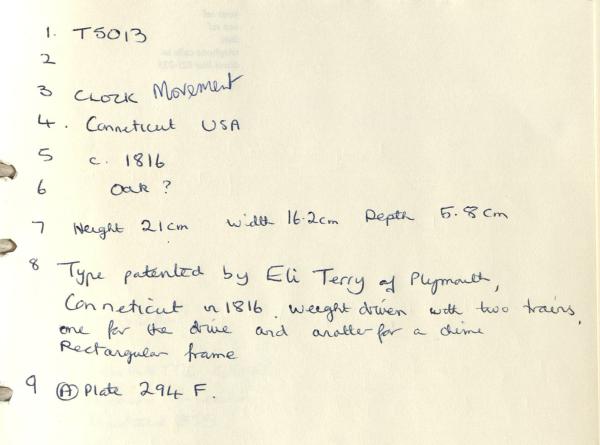 1. T5013
2
3 CLOCK Movement
4. Conneticut USA
5 c. 1816
6 Oak ?
7 Height 21cm Width 16.2cm Depth 5.8cm
8 Type patented by Eli Terry of Plymouth,
Conneticut in 1816. Weight driven with two trains,
one for the drive and another for a chime
Rectangular frame
9 Ⓐ Plate 294 F.